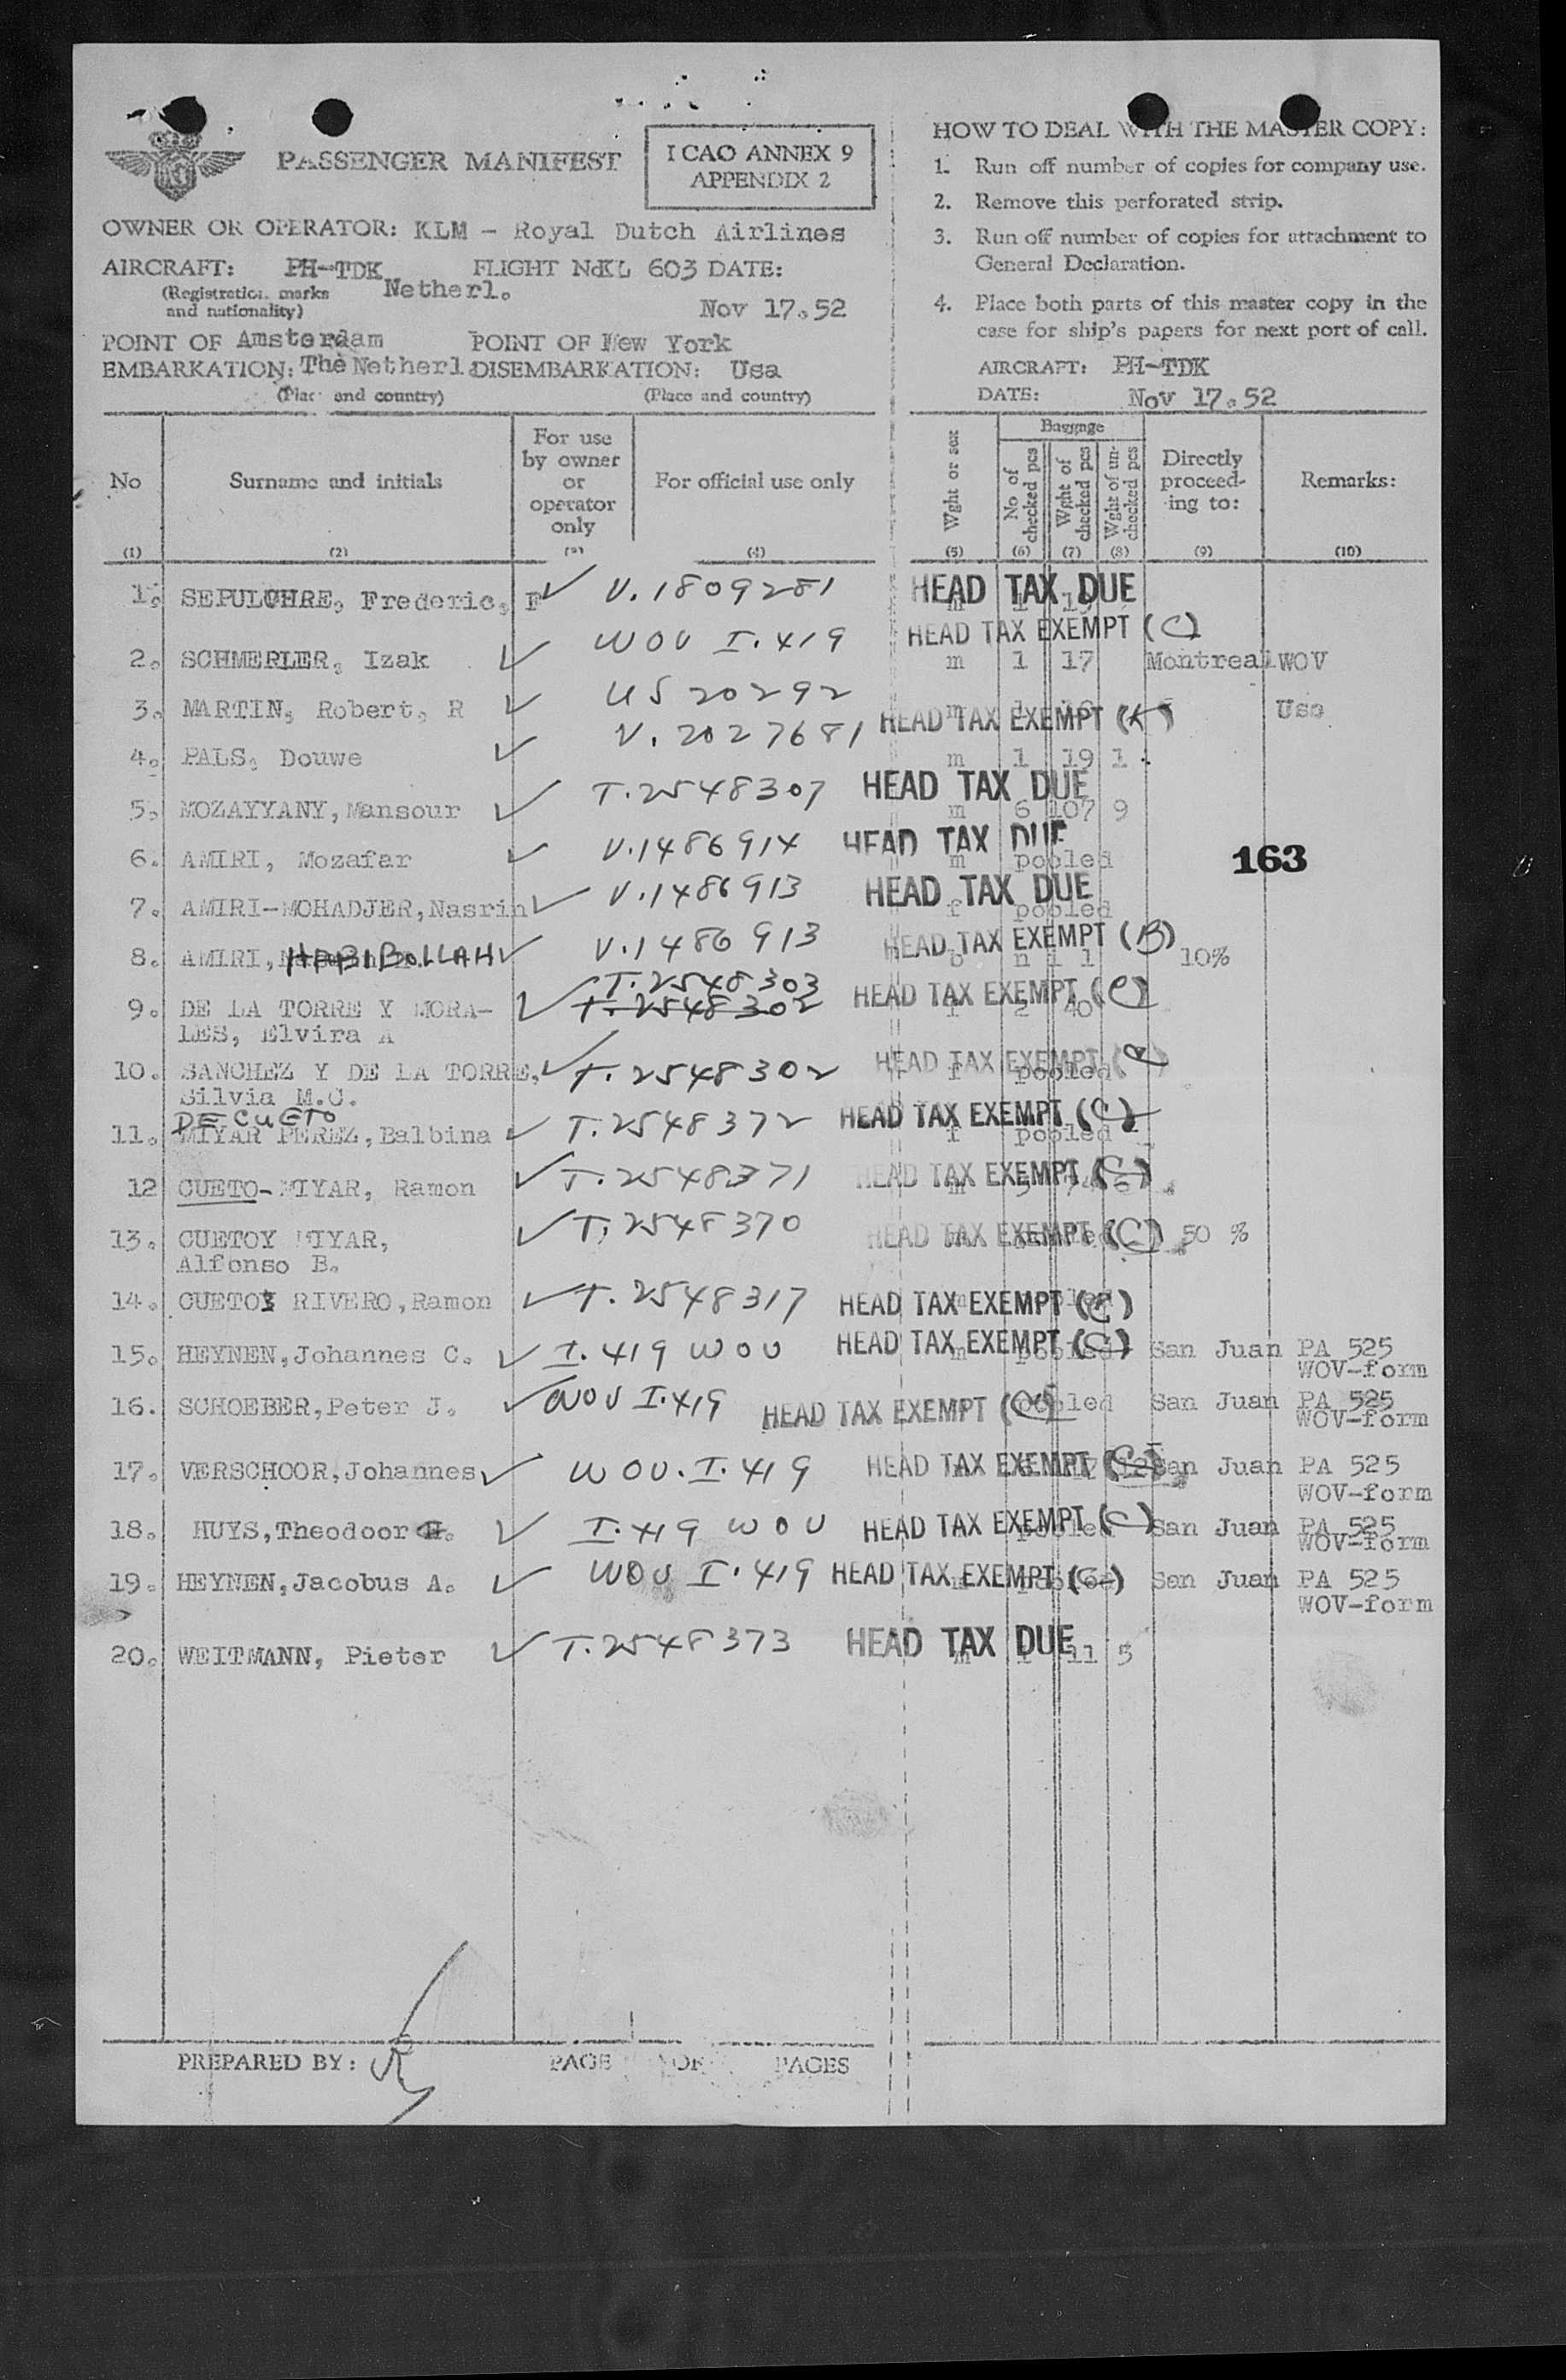 PASSENGER MANIFEST
ICAO ANNEX 9
APPENDIX 2
OWNER OR OPERATOR: KLM - Royal Dutch Airlines
AIRCRAFT: PH-TDK FLIGHT No KL 603 DATE:
(Registration marks and nationality) Netherl. Nov 17.52
POINT OF EMBARKATION: Amsterdam The Netherl.
(Place and country)
POINT OF DISEMBARKATION: New York Usa
(Place and country)
HOW TO DEAL WITH THE MASTER COPY:
1. Run off number of copies for company use.
2. Remove this perforated strip.
3. Run off number of copies for attachment to
General Declaration.
4. Place both parts of this master copy in the
case for ship's papers for next port of call.
AIRCRAFT: PH-TDK
DATE: Nov 17.52
No (1)
Surname and initials (2)
For use by owner or operator only (3)
For official use only (4)
Wght or sex (5)
Baggage
No of checked pcs (6)
Wght of checked pcs (7)
Wght of unchecked pcs (8)
Directly proceeding to: (9)
Remarks: (10)
1. SEPULCHRE, Frederic, F V.1809281 HEAD TAX DUE
2. SCHMERLER, Izak WOV I.419 HEAD TAX EXEMPT (C) m 1 17 Montreal WOV
3. MARTIN, Robert, R US 20292 m Usa
4. PALS, Douwe V.2027681 HEAD TAX EXEMPT m 1 19 1
5. MOZAYYANY, Mansour T.2548307 HEAD TAX DUE m 6 107 9
6. AMIRI, Mozafar V.1486914 HEAD TAX DUE m pooled
163
7. AMIRI-MOHADJER, Nasrin V.1486913 HEAD TAX DUE f pooled
8. AMIRI, HABIBOLLAH V.1486913 HEAD TAX EXEMPT (B) b nil 10%
9. DE LA TORRE Y MORA- T.2548303 T.2548302 HEAD TAX EXEMPT (C) f 2 40
LES, Elvira A
10. SANCHEZ Y DE LA TORRE, T.2548302 HEAD TAX EXEMPT f pooled
Silvia M.C.
DE CUETO
11. MIYAR PEREZ, Balbina T.2548372 HEAD TAX EXEMPT (C) f pooled
12 CUETO-MIYAR, Ramon T.2548371 HEAD TAX EXEMPT (C) m
13. CUETOY MIYAR, T.2548370 HEAD TAX EXEMPT (C) 50 %
Alfonso B.
14. CUETOY RIVERO, Ramon T.2548317 HEAD TAX EXEMPT (C)
15. HEYNEN, Johannes C. I.419 WOV HEAD TAX EXEMPT (C) m pooled San Juan PA 525
WOV-form
16. SCHOEBER, Peter J. WOV I.419 HEAD TAX EXEMPT (C) pooled San Juan PA 525
WOV-form
17. VERSCHOOR, Johannes WOV.I.419 HEAD TAX EXEMPT (C) San Juan PA 525
WOV-form
18. HUYS, Theodoor H. I.419 WOV HEAD TAX EXEMPT (C) pooled San Juan PA 525
WOV-form
19. HEYNEN, Jacobus A. WOV I.419 HEAD TAX EXEMPT (C) San Juan PA 525
WOV-form
20. WEITMANN, Pieter T.2548373 HEAD TAX DUE m 1 11 5
PREPARED BY: PAGE OF PAGES